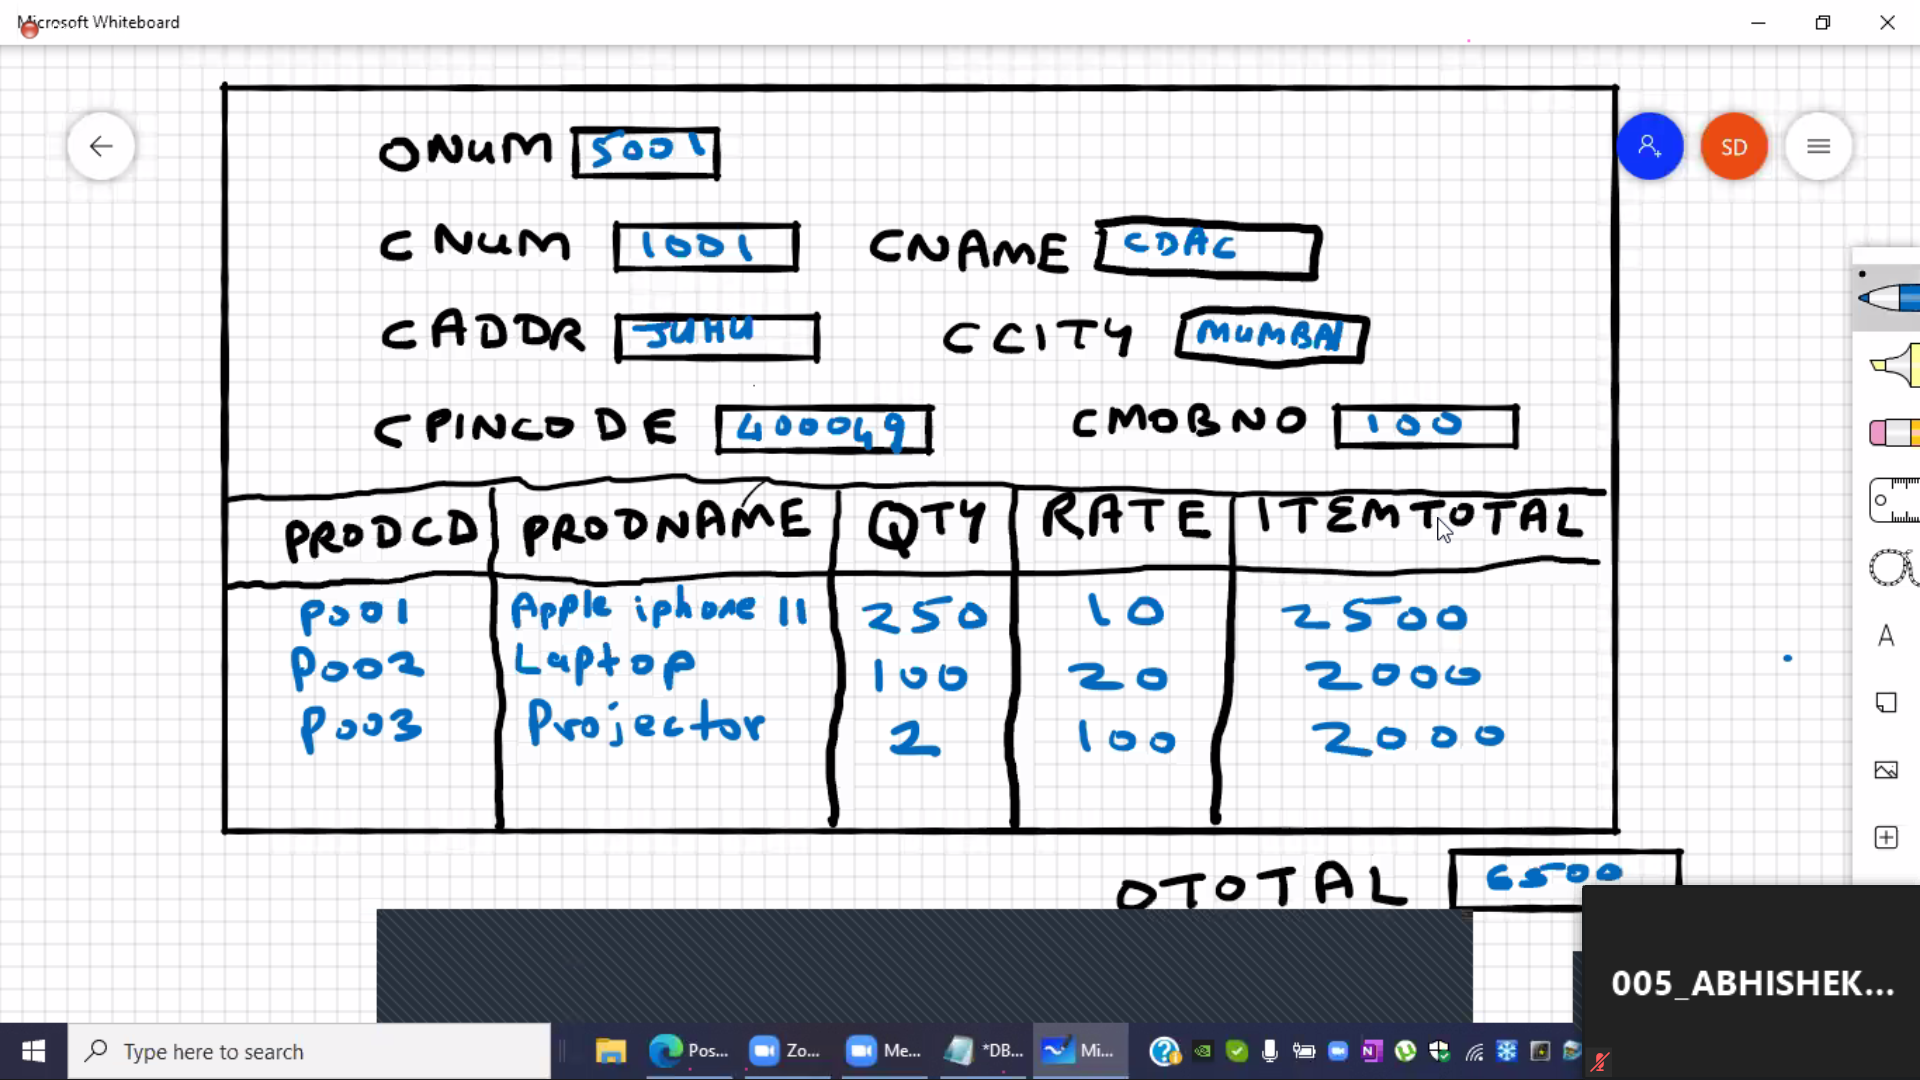 Microsoft Whiteboard
ONUM 5001
CNUM 1001 CNAME CDAC
SD
CADDR JUHU CCITY MUMBAI
CPINCODE 400049 CMOBNO 100
PRODCD PRODNAME QTY RATE ITEMTOTAL
P001 Apple iphone 11 250 10 2500
P002 Laptop 100 20 2000
P003 Projector 2 100 2000
OTOTAL 6500
005_ABHISHEK...
Type here to search
Pos... Zo... Me... *DB... Mi...